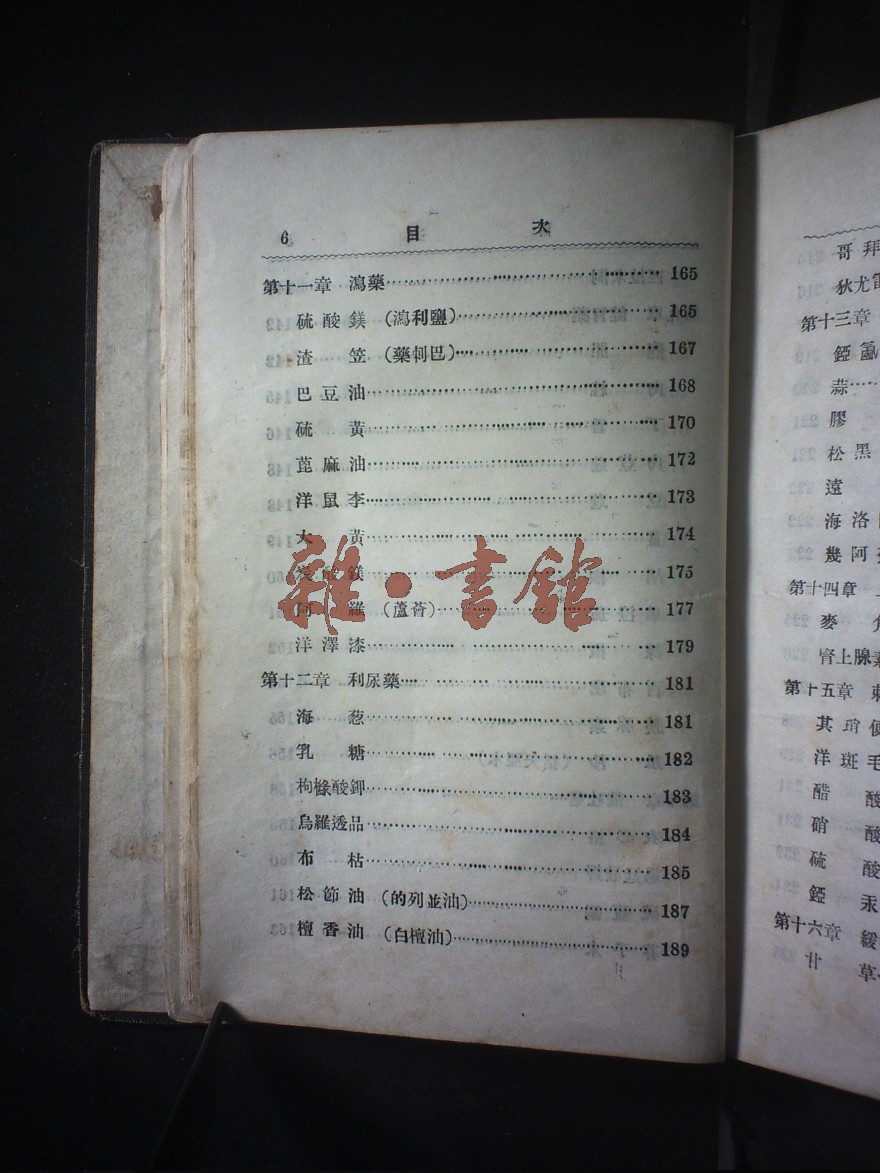 6 目次
第十一章 瀉藥 165
硫酸鎂 (瀉利鹽) 165
渣笠 (藥刺巴) 167
巴豆油 168
硫黃 170
蓖麻油 172
洋鼠李 173
大黃 174
鎂 175
阿羅 (蘆薈) 177
洋澤漆 179
第十二章 利尿藥 181
海葱 181
乳糖 182
枸櫞酸鉀 183
烏羅透品 184
布枯 185
松節油 (的列並油) 187
檀香油 (白檀油) 189
雜·書館
哥拜
狄尤
第十三章
蒜
膠
松黑
遠
海洛
幾阿
第十四章
麥角
腎上腺素
第十五章 刺
其硝
洋斑毛
醋酸
硝酸
硫酸
汞
第十六章 緩
甘草